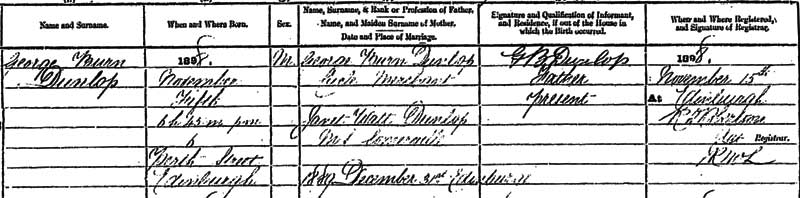 Name and Surname.
When and Where Born.
Sex.
Name, Surname, & Rank or Profession of Father.
Name, and Maiden Surname of Mother.
Date and Place of Marriage.
Signature and Qualification of Informant,
and Residence, if out of the House in
which the Birth occurred.
When and Where Registered,
and Signature of Registrar.
George Burn
Dunlop
1898.
November
Fifth
6 h. m. p.m.
6
Perth Street
Edinburgh
M
George Burn Dunlop
Merchant
Janet Watt Dunlop
M.S.
1889 December 31st Edinburgh
G B Dunlop
Father
present
1898.
November 15th
At Edinburgh
Registrar.